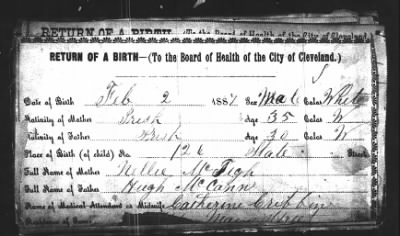 RETURN OF A BIRTH (To the Board of Health of the City of Cleveland.)
RETURN OF A BIRTH—(To the Board of Health of the City of Cleveland.)
Date of Birth Feb 2 188 Sex Male Color White
Nativity of Mother Irish Age 35 Color W
Nativity of Father Irish Age 30 Color W
Place of Birth (of child) No. 126 State Street
Full Name of Mother Nellie McTigh
Full Name of Father Hugh McCann
Name of Medical Attendant or Midwife Catherine